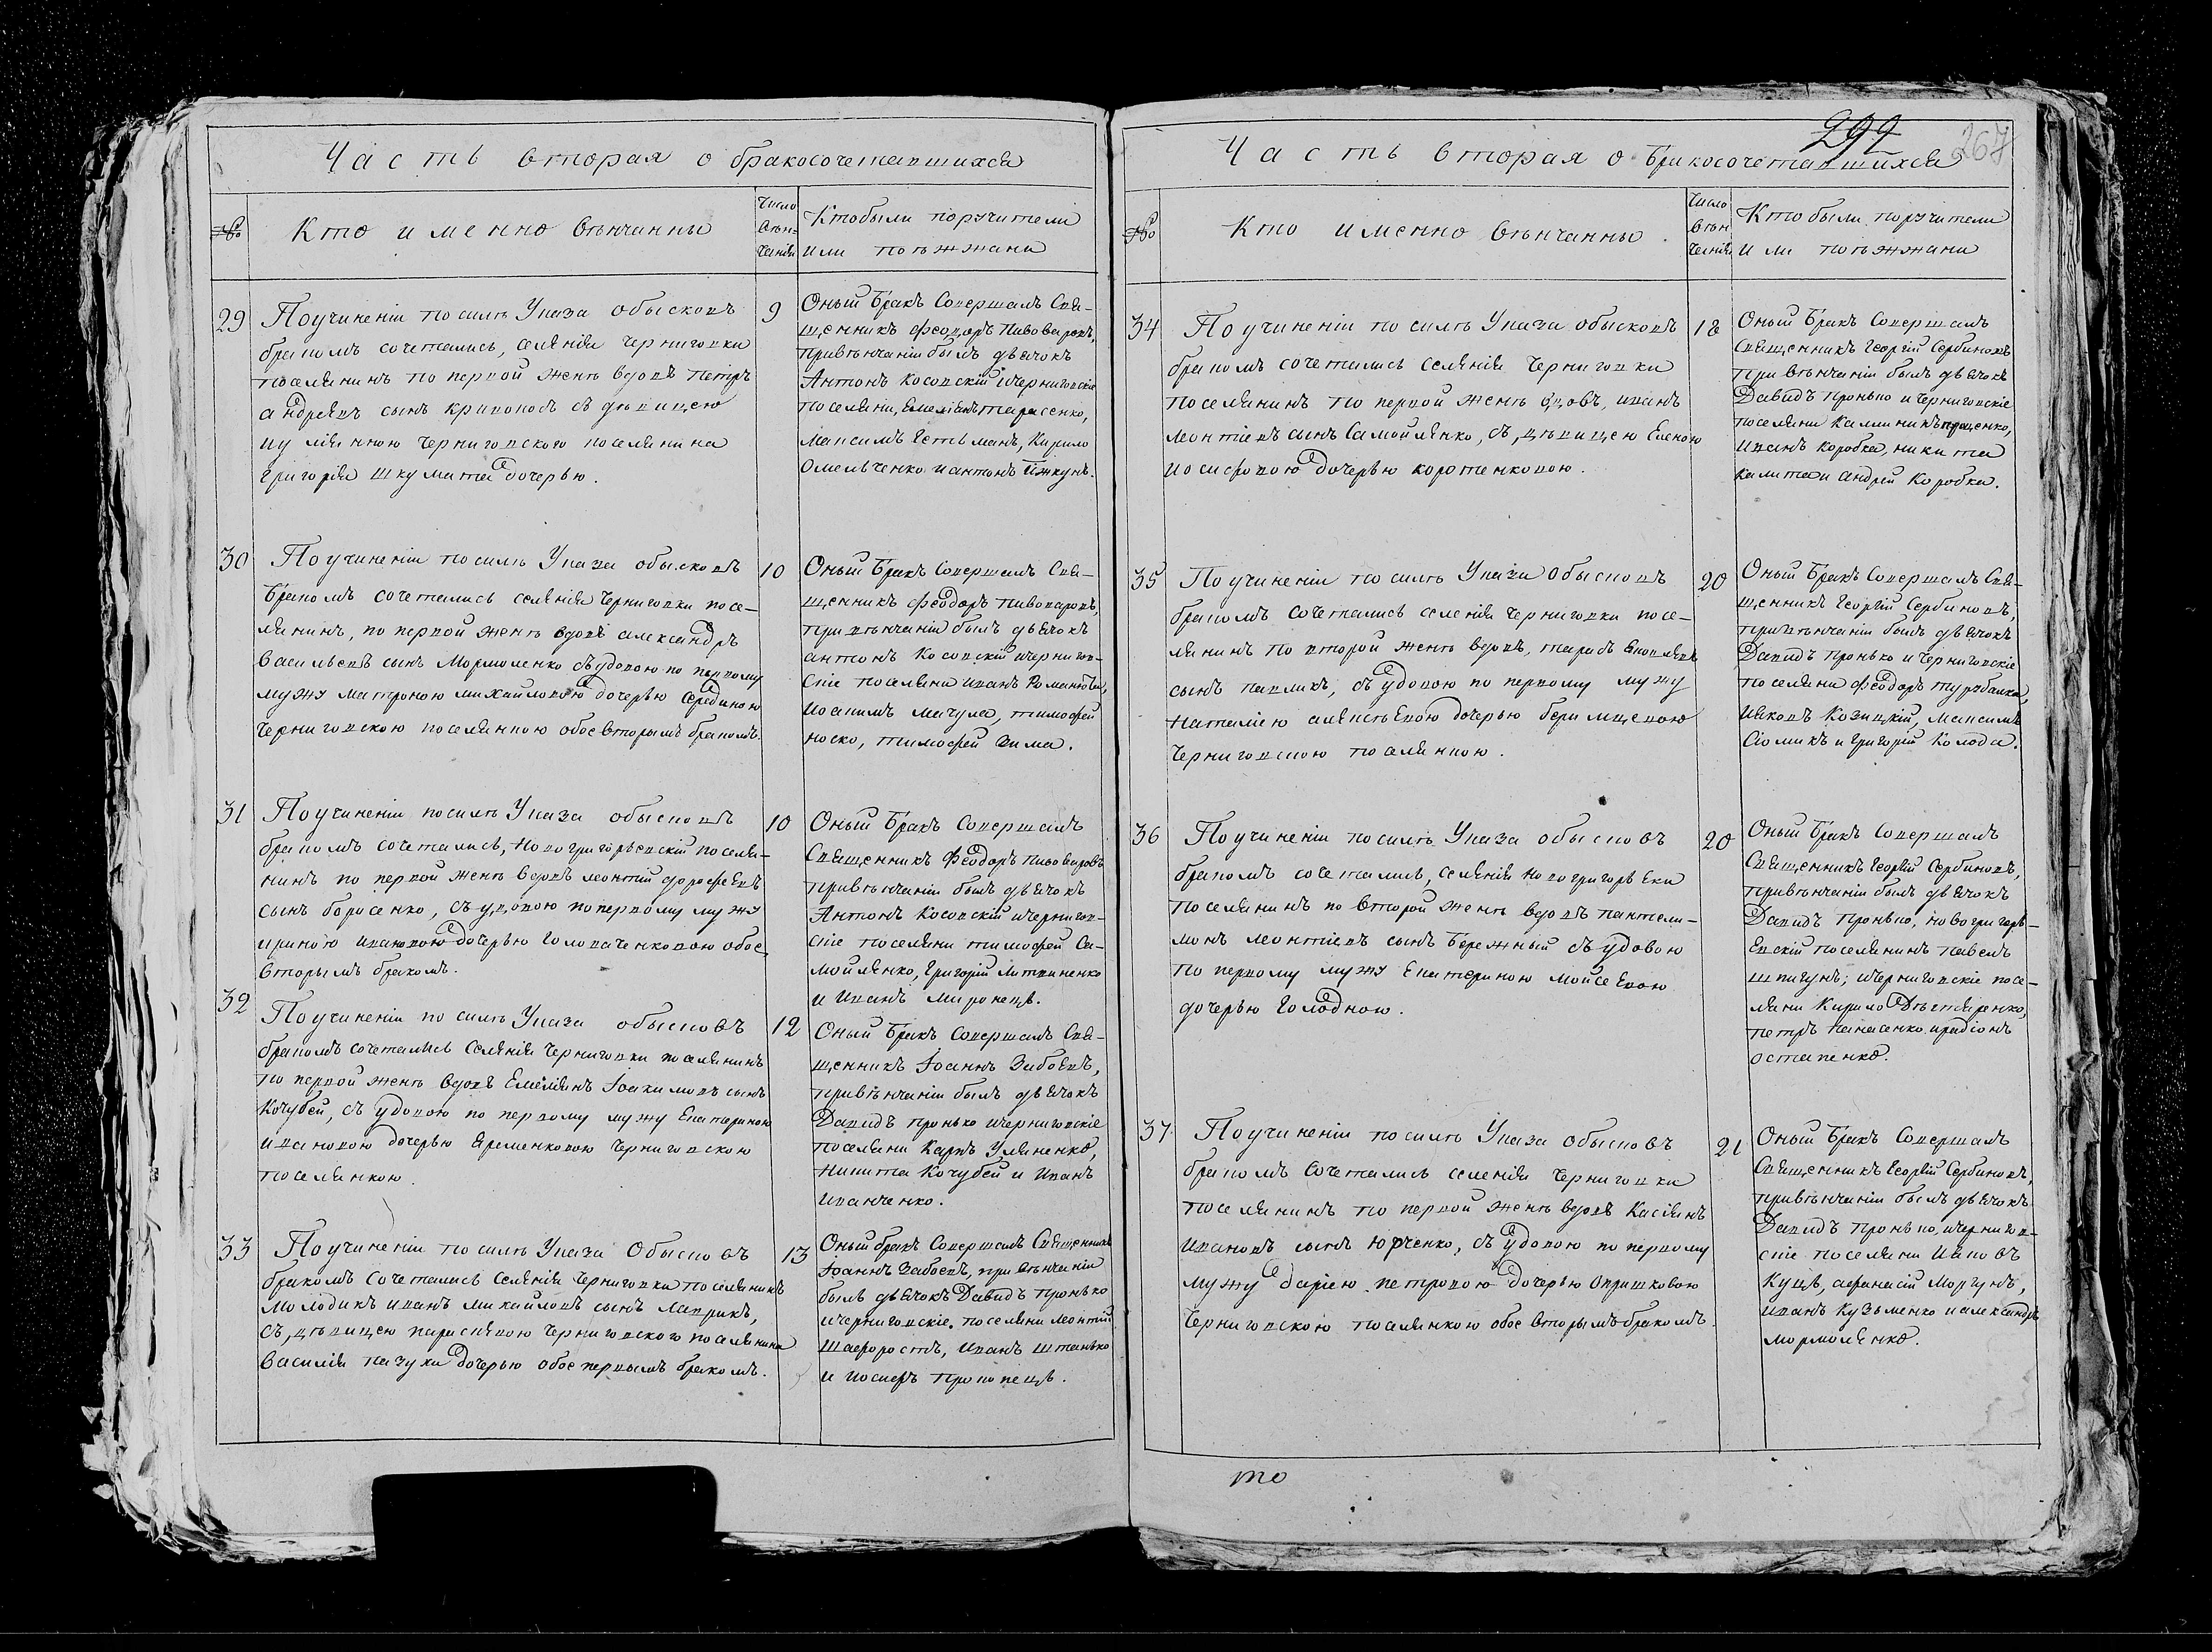 Часть вторая о бракосочетавшихся
№
Кто именно венчанны
Число венчанія
Кто были поручители
или поезжжани
29
Поучиненіи по силѣ Указа обысковъ
бракомъ сочетались, селенія Черниговки
поселянинъ по первой женѣ вдовъ Петръ
Андреевъ сынъ Кривоносъ съ дѣвицею
иулияною Черниговского поселянина
Григорія Шкумата дочерью.
9
Оный бракъ Совершалъ Свя-
щенникъ Феодоръ Пивоваровъ,
привѣнчаніи былъ дьячокъ
Антонъ Косовскій ичерниговскіе
поселяни, Емеліянъ тарасенко,
Максимъ Гетьманъ, Кирило
Омельченко и антонъ
30
Поучиненіи по силѣ Указа обысковъ
Бракомъ сочетались селенія Черниговки посе-
лянинъ, по первой женѣ вдовъ александръ
васильевъ сынъ Мормоленко съ удовою по первому
мужу матроною михайловою дочерью Срединою
Черниговскою поселянкою обое вторымъ бракомъ.
10
Оный Бракъ Совершалъ Свя-
щенникъ Феодоръ пивоваровъ,
при вѣнчаніи былъ дьячокъ
антонъ Косовскій ичернигов-
скіе поселяни иванъ
иоакимъ мачула, тимофей
носко, тимофей Зима.
31
Поучиненіи по силѣ Указа обысковъ
бракомъ сочетались, новогригорьевскій поселя-
нинъ по первой женѣ вдовъ леонтій дорофеевъ
сынъ борисенко, съ удовою попервому мужу
ириною ивановою дочерью Головаченковою обое
вторымъ бракомъ.
10
Оный Бракъ Совершалъ
Священникъ Феодоръ Пивоваровъ
привѣнчаніи былъ дьячокъ
Антонъ Косовскій ичернигов-
скіе поселяни тимофей Са-
мойленко, Григорій Литвиненко
и Иванъ Миронецъ.
32
Поучиненіи по силѣ Указа обысковъ
бракомъ сочетались Селенія Черниговки поселянинъ
по первой женѣ вдовъ Емеліянъ Іоакимовъ сынъ
Кочубей, съ удовою по первому мужу Екатериною
ивановою дочерью Яременковою Черниговскою
поселянкою.
12
Оный Бракъ Совершалъ Свя-
щенникъ Іоаннъ Забоевъ,
привѣнчаніи былъ дьячокъ
Давидъ пронько ичерниговскіе
поселяни Карпъ Уляненко,
Никита Кочубей и Иванъ
Иванченко.
33
Поучиненіи по силѣ Указа Обысковъ
бракомъ сочетались Селенія Черниговки поселянинъ
молодикъ иванъ михайловъ сынъ Лаврикъ,
съ, дѣвицею параскевою Черниговского поселянина
василія пазухи дочерью обое первымъ бракомъ.
13
Оный бракъ Совершалъ Священникъ
Іоаннъ Забоевъ, при вѣнчаніи
былъ дьячокъ Давидъ пронько
ичерниговскіе. поселяни леонтій
Шаефоростъ, Иванъ Штанько
и иосифъ прокопецъ.
292
267
Часть вторая о Бракосочетавшихся
№
Кто именно венчанны
Число венчанія
Кто были поручители
или поезжжани
34
Поучиненіи по силѣ Указа обысковъ
бракомъ сочетались селенія Черниговки
поселянинъ по первой женѣ вдовъ, иванъ
леонтіевъ сынъ Самойленко, съ, дѣвицею Еленою
иосифовою дочерью коротенковою.
18
Оный Бракъ Совершалъ
Священникъ Георгій Сербиновъ
при вѣнчаніи былъ дьячокъ
Давидъ пронько и Черниговскіе
поселяни Калиникъ проценко,
иванъ Коробка, никита
калита и андрей Коробка.
35
Поучиненіи по силѣ Указа Обысковъ
бракомъ Сочетались селенія черниговки посе-
лянинъ по второй женѣ вдовъ, тарасъ яковлевъ
сынъ павликъ, съ удовою по первому мужу
наталіею алексѣевою дочерью
Черниговскою поселянкою.
20
Оный Бракъ Совершалъ Свя-
щенникъ Георгій Сербиновъ,
привѣнчаніи былъ дьячокъ
Давидъ пронько и Черниговскіе
поселяни Феодоръ
Яковъ Козицкій, Максимъ
Сіомикъ и Григорій Колода.
36
Поучиненіи по силѣ Указа обысковъ
бракомъ сочетались, селенія новогригорьевки
поселянинъ по второй женѣ вдовъ пантели-
монъ леонтіевъ сынъ Бережный съ удовою
по первому мужу Екатериною мойсеевою
дочерью Голодною.
20
Оный Бракъ Совершалъ
Священникъ Георгій Сербиновъ,
привѣнчаніи былъ дьячокъ
Давидъ пронько, новогригорь-
евскій поселянинъ павелъ
шпигунъ; ичерниговскіе посе-
ляни Кирило Дегтяренко,
петръ панасенко ирадіонъ
остапенко.
37
Поучиненіи по силѣ Указа обысковъ
бракомъ Сочетались селенія Черниговки
поселянинъ по первой женѣ вдовъ Касіянъ
ивановъ сынъ Юрченко, съ удовою по первому
мужу даріею петровою дочерью Опришковою
Черниговскою поселянкою обое вторымъ бракомъ.
21
Оный Бракъ Совершалъ
Священникъ Георгій Сербиновъ,
привѣнчаніи былъ дьячокъ
Давидъ пронько, ичернигов-
скіе поселяни Яковъ
Куцъ, афанасій Моргунъ,
иванъ Кузьменко и александръ
мормоленко.
то